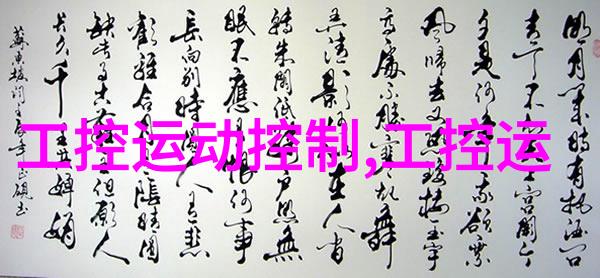 工控运动控制,工控运
明月几時有把酒问
青天不知天上宫阙今
夕是何年我欲乘
风归去又恐琼楼玉宇
高處不勝寒起舞
弄清影何似在人间
转朱阁低绮户照无
眠不應有恨何事
长向别時圆人有悲
欢离合月有阴晴圆
缺此事古难全但愿人
长久千里共婵娟
苏東坡词